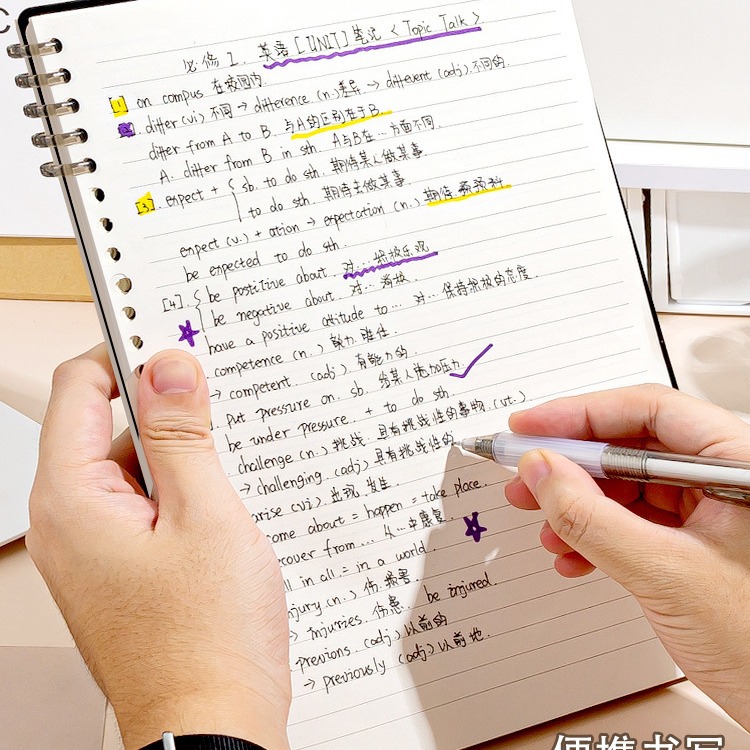 必修 1. 英语 [UNIT] 笔记 < Topic Talk >
[1] on compus 在校园内.
[2]. differ (vi) 不同 → difference (n.) 差异 → different (adj). 不同的.
differ from A to B. 与A的区别在于B.
A. differ from B in sth. A与B在…方面不同.
[3]. expect + { sb. to do sth. 期待某人做某事.
to do sth. 期待去做某事.
expect (v.) + ation → expectation (n.) 期待.
be expected to do sth.
[4]. { be postitive about. 对…积极乐观
be negative about. 对…消极.
have a positive attitude to… 对…保持积极的态度.
competence (n.) 能力.
→ competent. (adj) 有能力的.
Put pressure on. sb. 给某人施加压力.
be under pressure. + to do sth.
challenge (n.) 挑战. 具有挑战性的事物. (vt.)
→ challenging. (adj) 具有挑战性的
arise (vi) 出现. 发生.
come about = happen = take place.
recover from … 从…中康复.
all in all. = in a world.
injury (n.) 伤. 损害.
→ injuries. 伤患. be injured.
Previous. (adj.) 以前的
→ previously (adj) 以前地.
便携书写